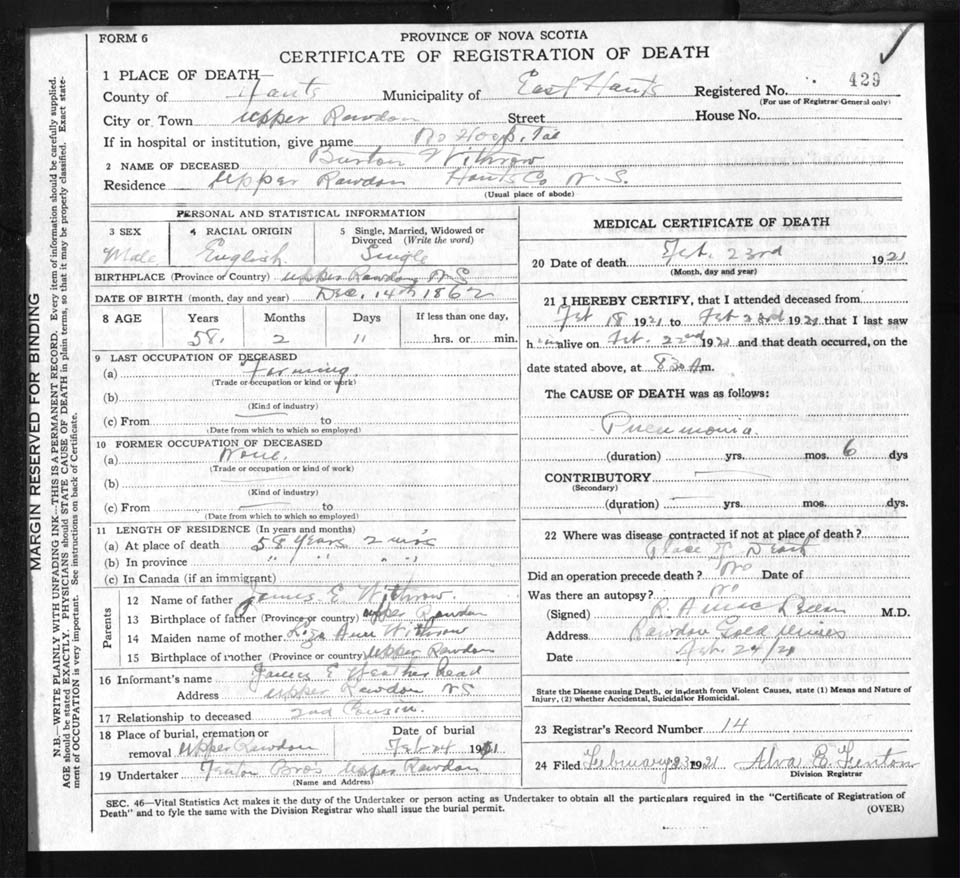 FORM 6
PROVINCE OF NOVA SCOTIA
CERTIFICATE OF REGISTRATION OF DEATH
1 PLACE OF DEATH—
County of Hants Municipality of East Hants Registered No. 429
(For use of Registrar-General only)
City or Town Upper Rawdon Street House No.
If in hospital or institution, give name No Hospital
2 NAME OF DECEASED Burton Withrow
Residence Upper Rawdon Hants Co N.S.
(Usual place of abode)
MARGIN RESERVED FOR BINDING
N.B.—WRITE PLAINLY WITH UNFADING INK—THIS IS A PERMANENT RECORD. Every item of information should be carefully supplied.
AGE should be stated EXACTLY. PHYSICIANS should STATE CAUSE OF DEATH in plain terms, so that it may be properly classified. Exact state-
ment of OCCUPATION is very important. See instructions on back of Certificate.
PERSONAL AND STATISTICAL INFORMATION
3 SEX
Male
4 RACIAL ORIGIN
English
5 Single, Married, Widowed or
Divorced (Write the word)
Single
BIRTHPLACE (Province or Country) Upper Rawdon N S
DATE OF BIRTH (month, day and year) Dec. 14th 1862
8 AGE Years Months Days If less than one day,
58. 2 11 hrs. or min.
9 LAST OCCUPATION OF DECEASED
(a) Farming
(Trade or occupation or kind or work)
(b)
(Kind of industry)
(c) From to
(Date from which to which so employed)
10 FORMER OCCUPATION OF DECEASED
(a) None.
(Trade or occupation or kind of work)
(b)
(Kind of industry)
(c) From to
(Date from which to which so employed)
11 LENGTH OF RESIDENCE (In years and months)
(a) At place of death 58 years 2 mos
(b) In province " " " "
(c) In Canada (if an immigrant)
Parents
12 Name of father James E Withrow.
13 Birthplace of father (Province or country) Upper Rawdon
14 Maiden name of mother Liza Ann Withrow
15 Birthplace of mother (Province or country) Upper Rawdon
16 Informant's name James E Weatherhead
Address Upper Rawdon NS
17 Relationship to deceased 2nd Cousin.
18 Place of burial, cremation or
removal Upper Rawdon
Date of burial
Feb 24 1921
19 Undertaker Fenton Bros Upper Rawdon
(Name and Address)
MEDICAL CERTIFICATE OF DEATH
20 Date of death Feb. 23rd 1921
(Month, day and year)
21 I HEREBY CERTIFY, that I attended deceased from
Feb 18 1921 to Feb 23rd 1921 that I last saw
him alive on Feb. 22nd 1921 and that death occurred, on the
date stated above, at 8 30 A m.
The CAUSE OF DEATH was as follows:
Pneumonia.
(duration) yrs. mos. 6 dys
CONTRIBUTORY
(Secondary)
(duration) yrs. mos. dys.
22 Where was disease contracted if not at place of death?
Place of Death
Did an operation precede death? No Date of
Was there an autopsy? No
(Signed) M.D.
Address Rawdon Gold Mines
Date Feb. 24/21
State the Disease causing Death, or in death from Violent Causes, state (1) Means and Nature of
Injury, (2) whether Accidental, Suicidal or Homicidal.
23 Registrar's Record Number 14
24 Filed February 23 1921 Alva E. Fenton
Division Registrar
SEC. 46—Vital Statistics Act makes it the duty of the Undertaker or person acting as Undertaker to obtain all the particulars required in the "Certificate of Registration of
Death" and to fyle the same with the Division Registrar who shall issue the burial permit.
(OVER)